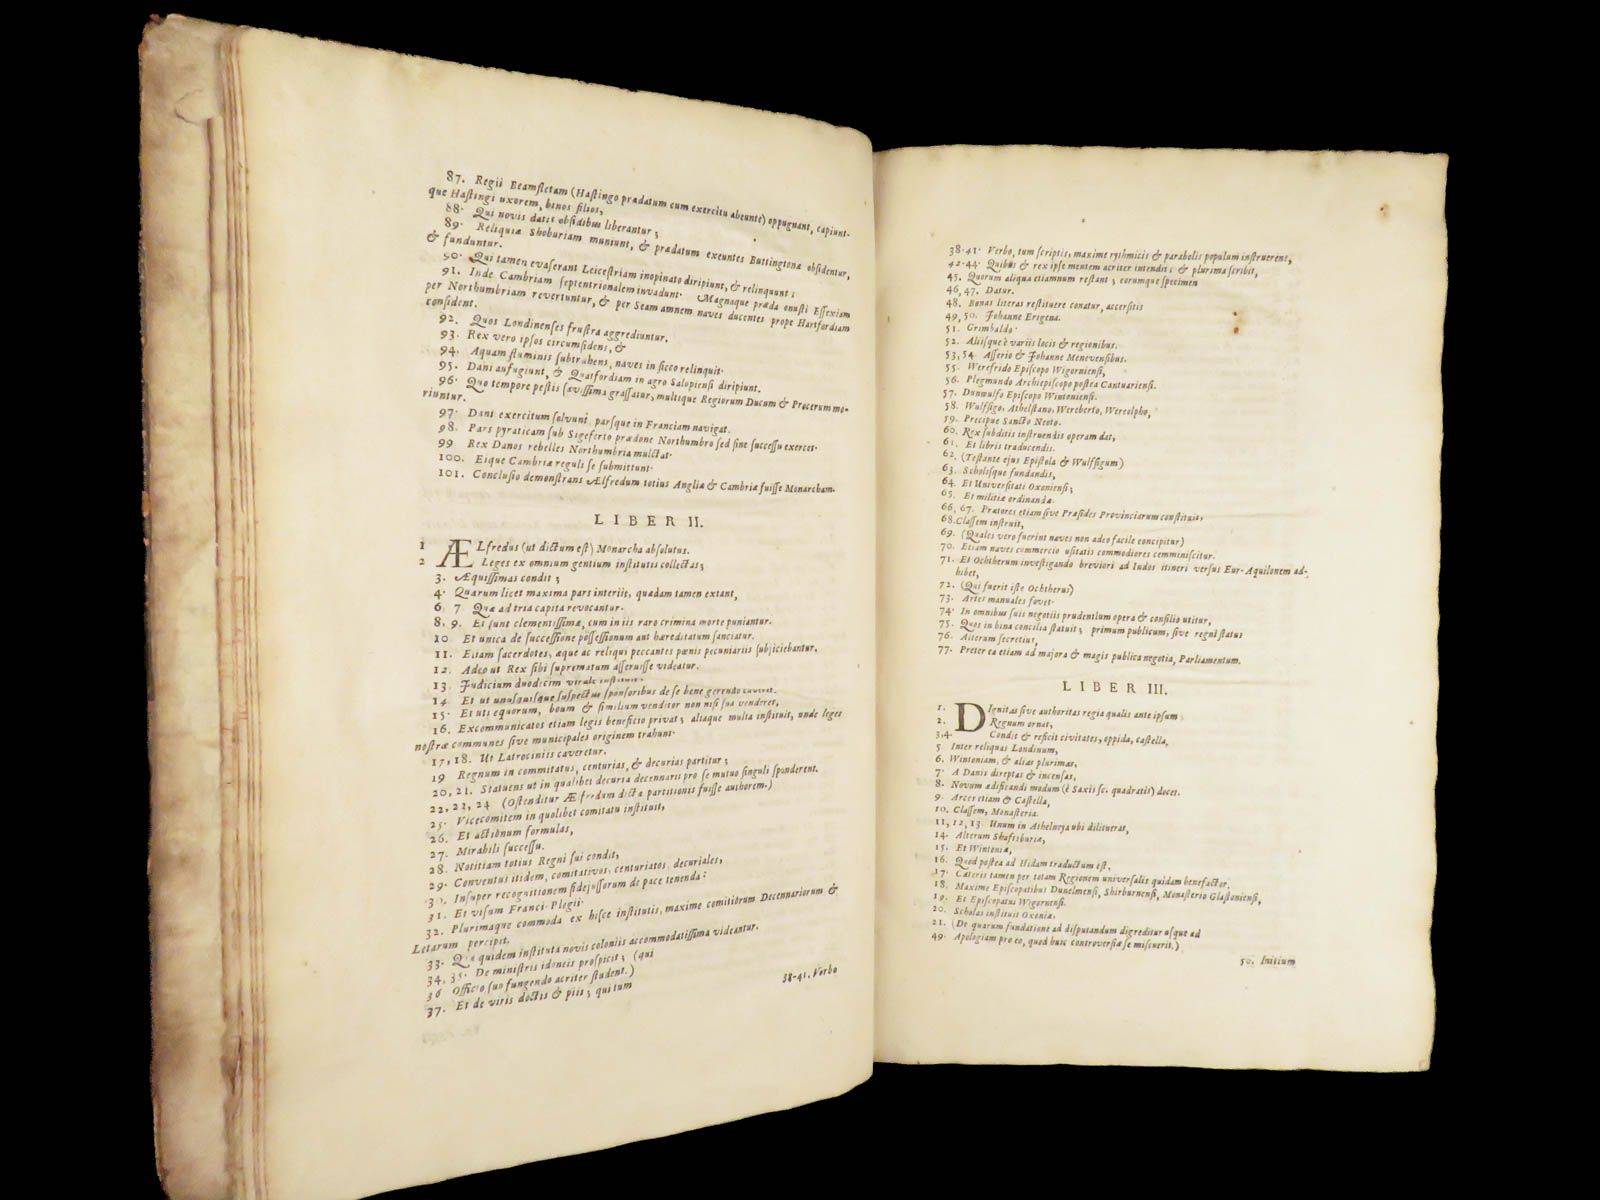 87. Regii Beamfletam (Haſtingo prædatum cum exercitu abeunte) oppugnant, capiunt-
que Haſtingi uxorem, binos filios,
88. Qui novis datis obſidibus liberantur;
89. Reliquiæ Shoburiam muniunt, & prædatum exeuntes Buttingtonæ obſidentur,
& funduntur.
90. Qui tamen evaſerant Leiceſtriam inopinato diripiunt, & relinquunt:
91. Inde Cambriam ſeptentrionalem invadunt. Magnaque præda onuſti Eſſexiam
per Northumbriam revertuntur, & per Seam amnem naves ducentes prope Hartfordiam
conſident.
92. Quos Londinenſes fruſtra aggrediuntur.
93. Rex vero ipſos circumſidens, &
94. Aquam fluminis ſubtrahens, naves in ſicco relinquit.
95. Dani aufugiunt, & Quatfordiam in agro Salopienſi diripiunt.
96. Quo tempore peſtis ſæviſſima graſſatur, multique Regiorum Ducum & Procerum mo-
riuntur.
97. Dani exercitum ſolvunt, parſque in Franciam navigat.
98. Pars pyraticam ſub Sigeferto prædone Northumbro ſed ſine ſucceſſu exercet.
99. Rex Danos rebelles Northumbria mulctat.
100. Eique Cambriæ reguli ſe ſubmittunt.
101. Concluſio demonſtrans Ælfredum totius Angliæ & Cambriæ fuiſſe Monarcham.
LIBER II.
1 ÆLfredus (ut dictum eſt) Monarcha abſolutus.
2 Leges ex omnium gentium inſtitutis collectas;
3. Æquiſſimas condit;
4. Quarum licet maxima pars interiit, quædam tamen extant,
6, 7 Quæ ad tria capita revocantur.
8, 9. Et ſunt clementiſſimæ, cum in iis raro crimina morte puniantur.
10 Et unica de ſucceſſione poſſeſſionum aut hæreditatum ſanciatur.
11. Etiam ſacerdotes, æque ac reliqui peccantes pœnis pecuniariis ſubjiciebantur.
12. Adeo ut Rex ſibi ſuprematum aſſeruiſſe videatur.
13. Judicium duodecim virale inſtituit.
14. Et ut unuſquiſque ſuſpectus ſponſoribus de ſe bene gerendo caveret.
15. Et uti equorum, boum & ſimilium venditor non niſi ſua venderet,
16. Excommunicatos etiam legis beneficio privat; aliaque multa inſtituit, unde leges
noſtræ communes ſive municipales originem trahunt.
17, 18. Ut Latrociniis caveretur.
19 Regnum in commitatus, centurias, & decurias partitur;
20, 21. Statuens ut in qualibet decuria decennaris pro ſe mutuo ſinguli ſponderent.
22, 23, 24 (Oſtenditur Ælfredum dictæ partitionis fuiſſe authorem.)
25. Vicecomitem in quolibet comitatu inſtituit,
26. Et actionum formulas,
27. Mirabili ſucceſſu.
28. Notitiam totius Regni ſui condit,
29. Conventus itidem, comitativos, centuriatos, decuriales,
30. Inſuper recognitionem fidejuſſorum de pace tenenda:
31. Et viſum Franci-Plegii.
32. Plurimaque commoda ex hiſce inſtitutis, maxime comitiorum Decennariorum &
Letarum percipit.
33. Quæ quidem inſtituta novis coloniis accommodatiſſima videantur.
34, 35. De miniſtris idoneis proſpicit; (qui
36 Officio ſuo fungendo acriter ſtudent.)
37. Et de viris doctis & piis; qui tum
38-41. Verbo
38-41. Verbo, tum ſcriptis, maxime rythmicis & parabolis populum inſtruerent,
42-44. Quibus & rex ipſe mentem acriter intendit: & plurima ſcribit,
45. Quorum aliqua etiamnum reſtant; eorumque ſpecimen
46, 47. Datur.
48. Bonas literas reſtituere conatur, accerſitis
49, 50. Johanne Erigena.
51. Grimbaldo.
52. Aliiſque è variis locis & regionibus.
53, 54 Aſſerio & Johanne Menevenſibus.
55. Werefrido Epiſcopo Wigornienſi,
56. Plegmundo Archiepiſcopo poſtea Cantuarienſi.
57. Dunwulfo Epiſcopo Wintonienſi.
58. Wulfſigo, Athelſtano, Wereberto, Wereolpho,
59. Precipue Sancto Neoto.
60. Rex ſubditis inſtruendis operam dat,
61. Et libris traducendis.
62. (Teſtante ejus Epiſtola & Wulfſigum)
63. Scholiſque fundandis,
64. Et Univerſitati Oxonienſi;
65. Et militiæ ordinandæ.
66, 67. Prætores etiam ſive Præſides Provinciarum conſtituit,
68. Claſſem inſtruit,
69. (Quales vero fuerint naves non adeo facile concipitur)
70. Etiam naves commercio uſitatis commodiores comminiſcitur.
71. Et Ochtherum inveſtigando breviori ad Indos itineri verſus Eur-Aquilonem ad-
hibet,
72. (Qui fuerit iſte Ochtherus)
73. Artes manuales fovet.
74. In omnibus ſuis negotiis prudentum opera & conſilio utitur,
75. Quos in bina concilia ſtatuit; primum publicum, ſive regni ſtatus
76. Alterum ſecretius,
77. Preter ea etiam ad majora & magis publica negotia, Parliamentum.
LIBER III.
1. DIgnitas ſive authoritas regia qualis ante ipſum
2. Regnum ornat,
3,4. Condit & reficit civitates, oppida, caſtella,
5 Inter reliquas Londinum,
6. Wintoniam, & alias plurimas,
7. A Danis direptas & incenſas,
8. Novum ædificandi modum (è Saxis ſc. quadratis) docet.
9. Arces etiam & Caſtella,
10. Claſſem, Monaſteria.
11, 12, 13 Unum in Athelneya ubi dilituerat,
14. Alterum Shaftsburiæ,
15. Et Wintoniæ,
16. Quod poſtea ad Hidam traductum eſt.
17. Cæteris tamen per totam Regionem univerſalis quidam benefactor.
18. Maxime Epiſcopatibus Dunelmenſi, Shirburnenſi, Monaſterio Glaſtonienſi,
19. Et Epiſcopatui Wigornenſi.
20. Scholas inſtituit Oxoniæ.
21. (De quarum fundatione ad diſputandum digreditur uſque ad
49. Apologiam pro eo, quod huic controverſiæ ſe miſcuerit.)
50. Initium